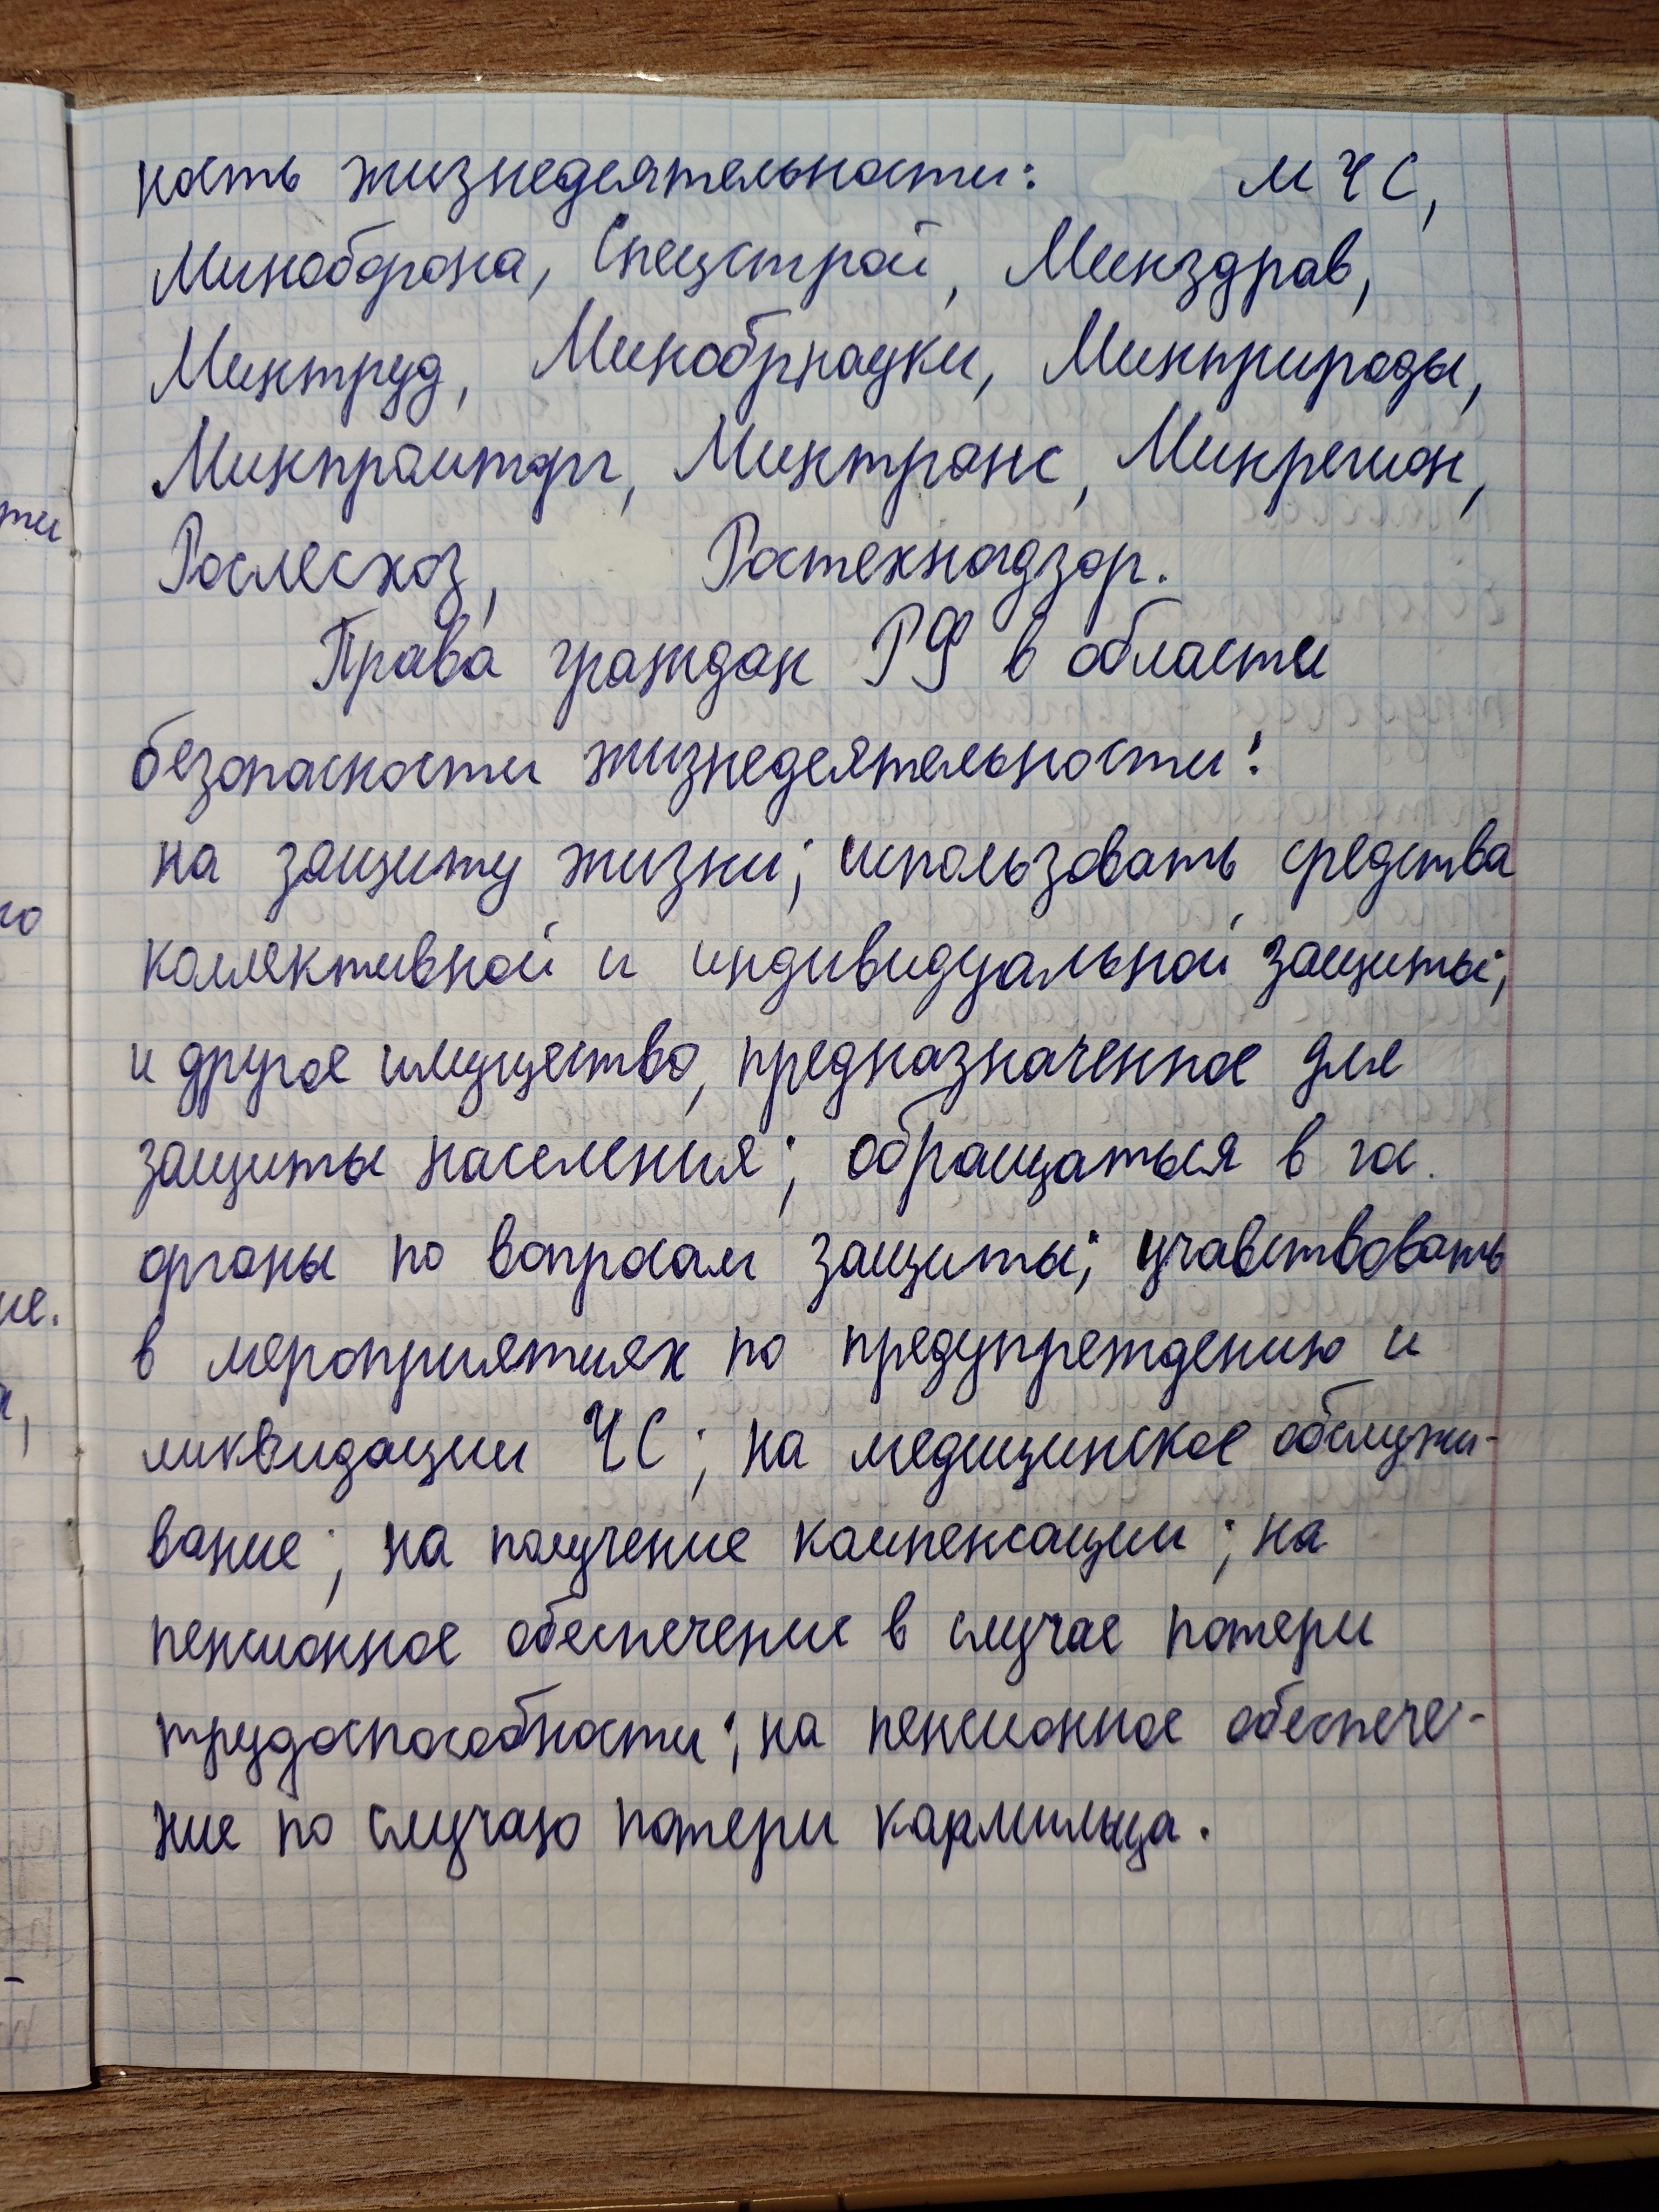 ность жизнедеятельности: МЧС,
Миноборона, Спецстрой, Минздрав,
Минтруд, Минобрнауки, Минприроды,
Минпромторг, Минтранс, Минрегион,
Рослесхоз, Ростехнадзор.
Права граждан РФ в области
безопасности жизнедеятельности:
на защиту жизни; использовать средства
коллективной и индивидуальной защиты;
и другое имущество, предназначенное для
защиты населения; обращаться в гос.
органы по вопросам защиты; учавствовать
в мероприятиях по предупреждению и
ликвидации ЧС; на медицинское обслужи-
вание; на получение компенсации; на
пенсионное обеспечение в случае потери
трудоспособности; на пенсионное обеспече-
ние по случаю потери кармильца.